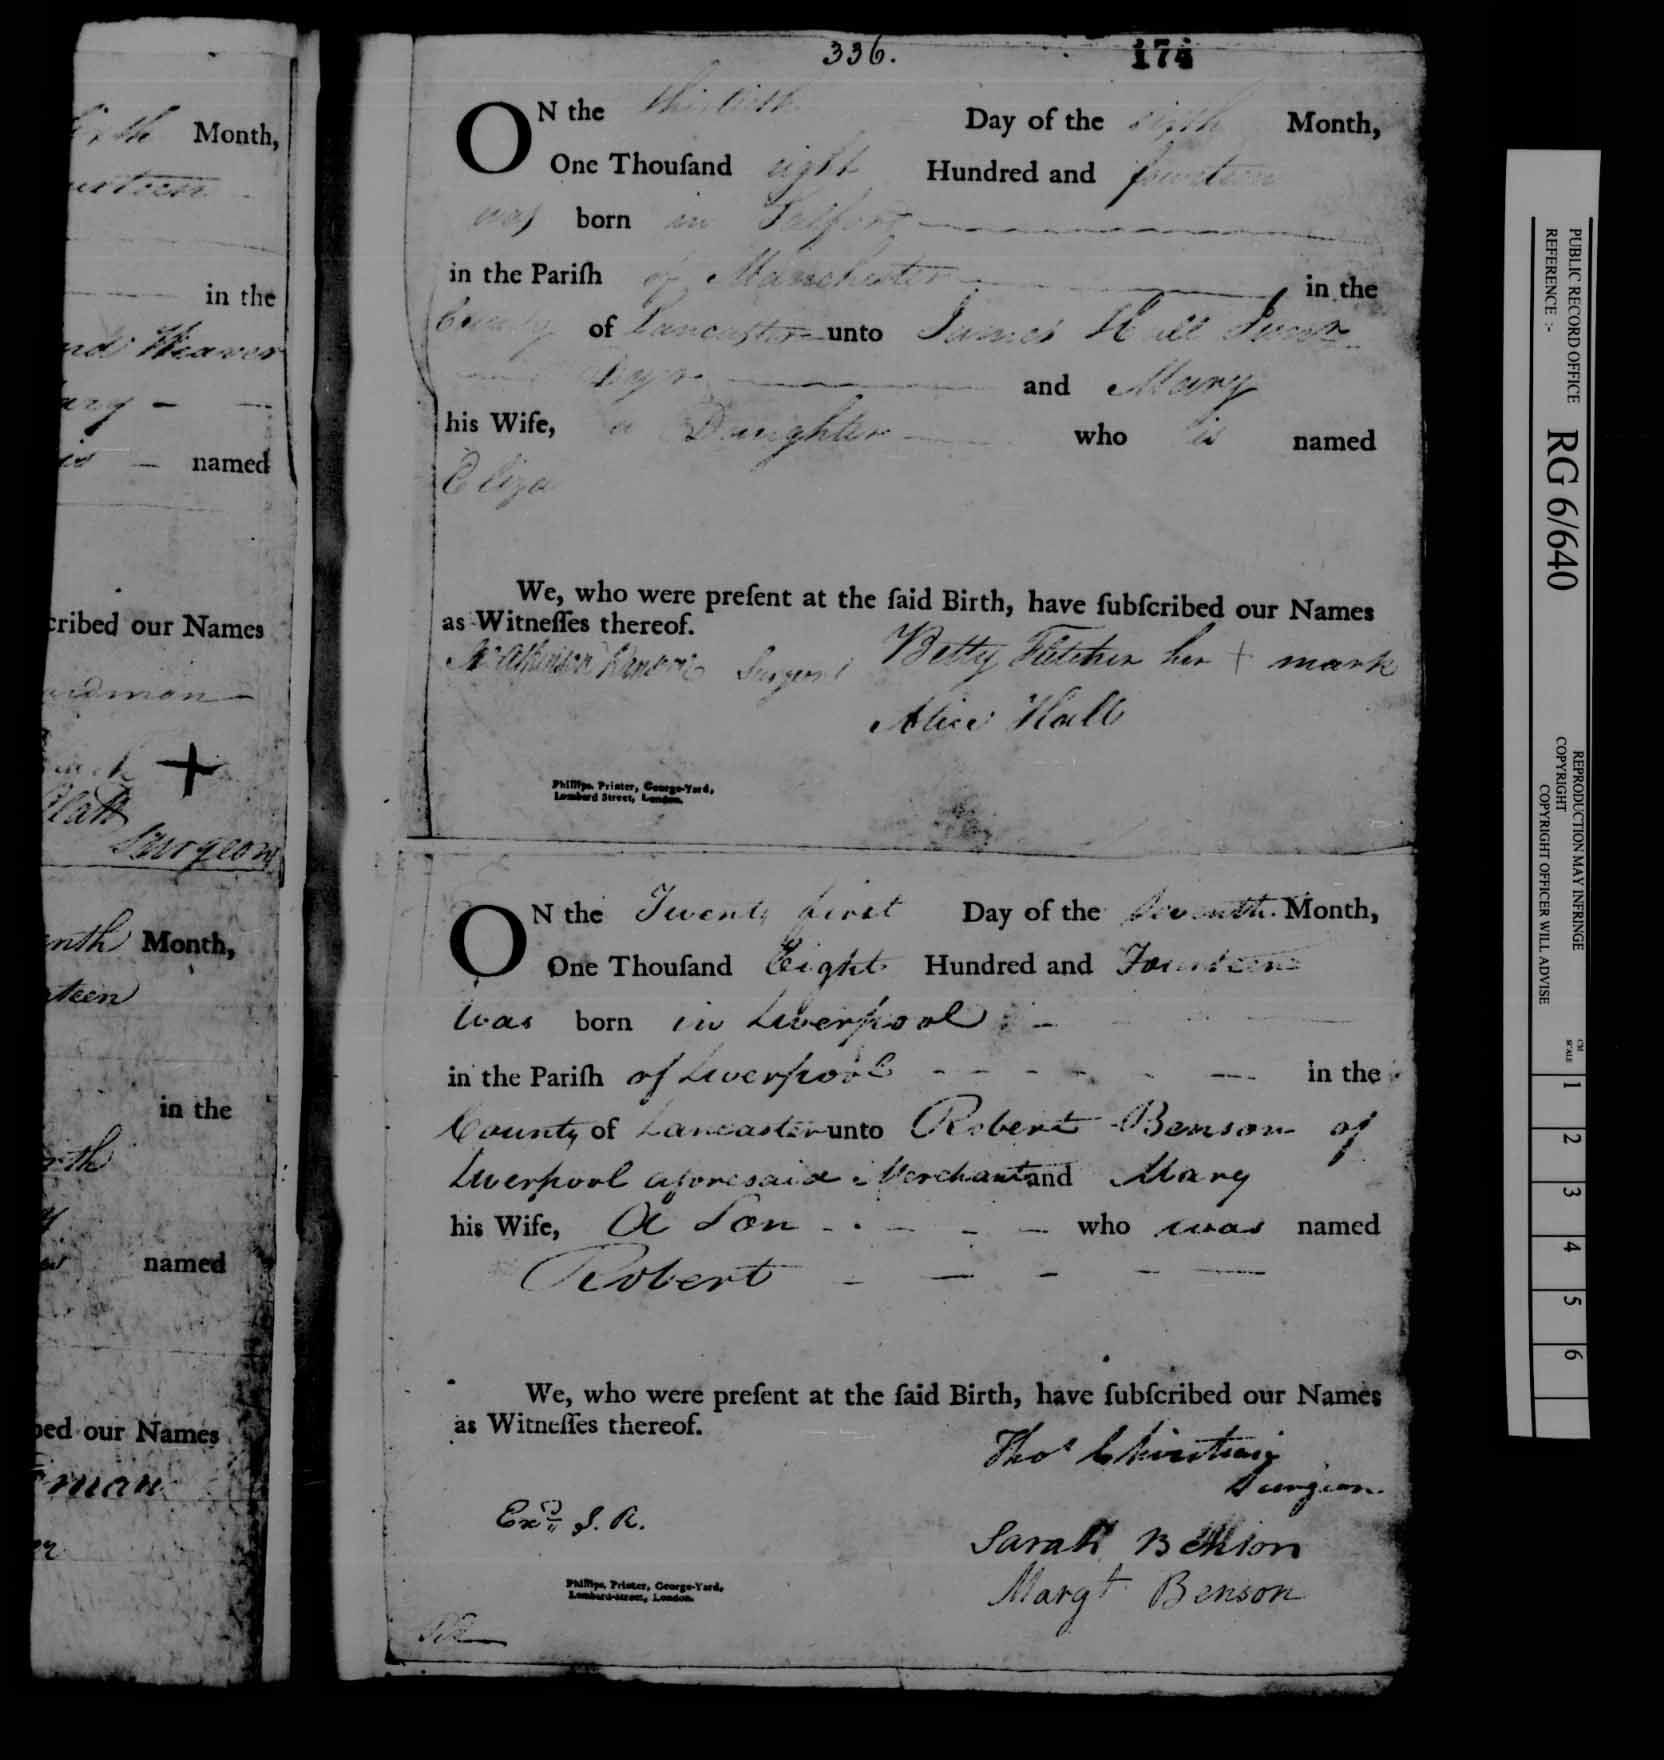 irth Month,
urteen
in the
nd Weaver
ary
is named
cribed our Names
rdman
+
Platt
Surgeon
enth Month,
teen
in the
rth
named
bed our Names
man
336. 174
ON the thirtieth Day of the sixth Month,
One Thouſand eight Hundred and fourteen
was born in Salford
in the Pariſh of Manchester in the
County of Lancaster unto James Hall Junr
Dyer and Mary
his Wife, a Daughter who is named
Eliza
We, who were preſent at the ſaid Birth, have ſubſcribed our Names
as Witneſſes thereof.
Surgeon Betty Fletcher her + mark
Alice Hall
Phillips, Printer, George-Yard,
Lombard Street, London.
ON the Twenty first Day of the Seventh Month,
One Thouſand Eight Hundred and Fourteen
was born in Liverpool
in the Pariſh of Liverpool in the
County of Lancaster unto Robert Benson of
Liverpool aforesaid Merchant and Mary
his Wife, A Son who was named
Robert
We, who were preſent at the ſaid Birth, have ſubſcribed our Names
as Witneſſes thereof.
Thos Christian
Surgeon
Exd J. R.
Sarah Benson
Margt Benson
Phillips, Printer, George-Yard,
Lombard-street, London.
PUBLIC RECORD OFFICE
REFERENCE :-
RG 6/640
REPRODUCTION MAY INFRINGE
COPYRIGHT
COPYRIGHT OFFICER WILL ADVISE
CM
SCALE
1 2 3 4 5 6